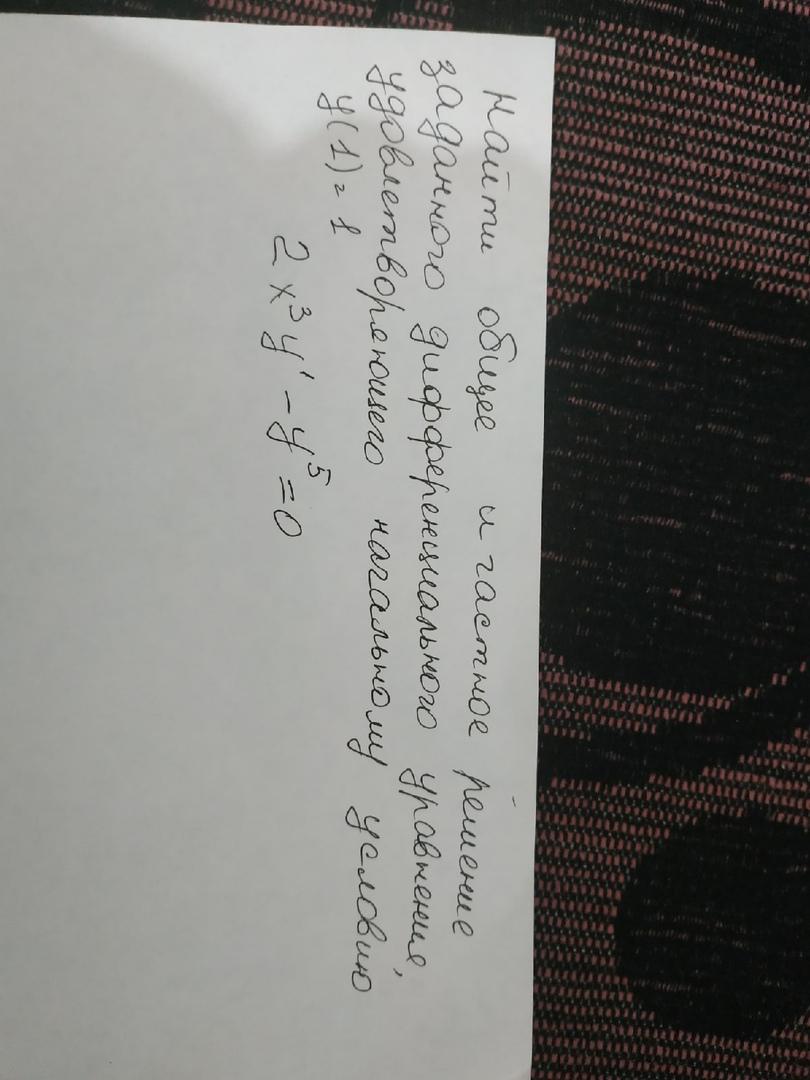 Найти общее и частное решение
заданного дифференциального уравнение,
удовлетворяющего начальному условию
y(1) = 1
2x³y' - y⁵ = 0